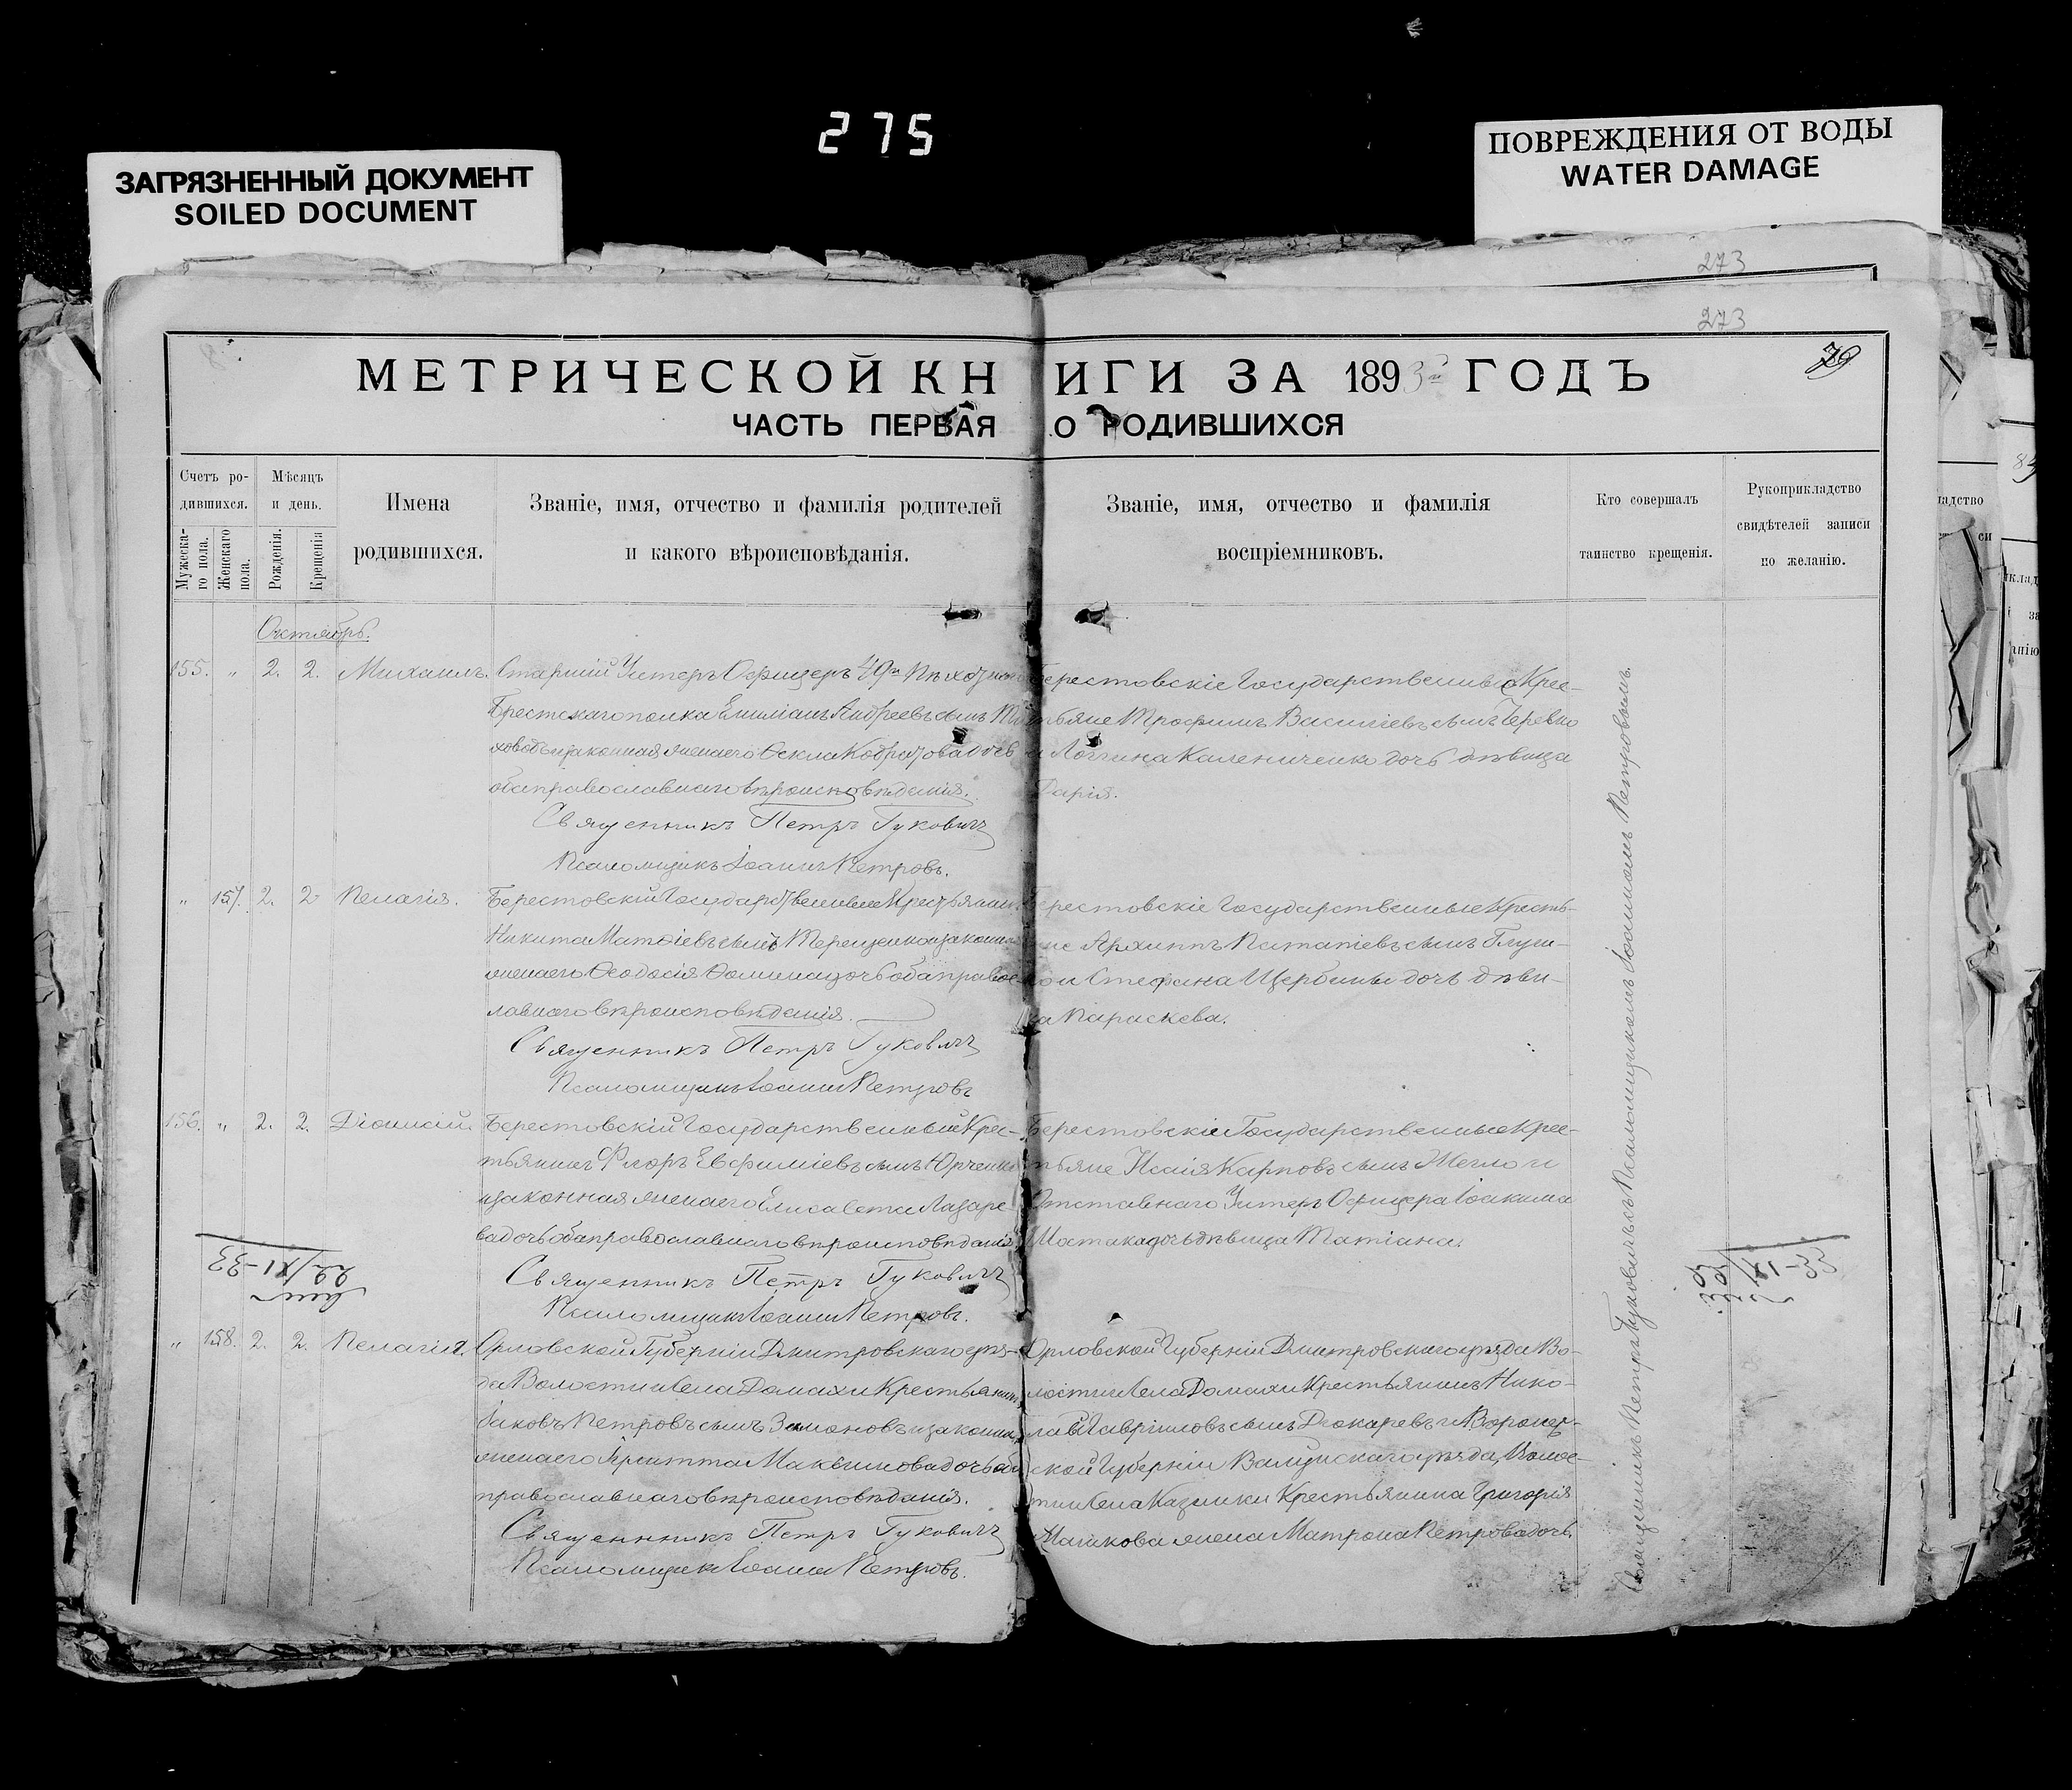 275
ЗАГРЯЗНЕННЫЙ ДОКУМЕНТ
SOILED DOCUMENT
ПОВРЕЖДЕНИЯ ОТ ВОДЫ
WATER DAMAGE
273
273
79
МЕТРИЧЕСКОЙ КНИГИ ЗА 1893 ГОДЪ
ЧАСТЬ ПЕРВАЯ О РОДИВШИХСЯ
Счетъ ро-
дившихся.
Мужеска-
го пола.
Женскаго
пола.
Мѣсяцъ
и день.
Рожденія.
Крещенія
Имена
родившихся.
Званіе, имя, отчество и фамилія родителей
и какого вѣроисповѣданія.
Званіе, имя, отчество и фамилія
воспріемниковъ.
Кто совершалъ
таинство крещенія.
Рукоприкладство
свидѣтелей записи
по желанію.
Октябрь.
155. " 2. 2. Михаилъ.
Старшій Унтеръ Офицеръ 49го Пѣхотнаго
Брестскаго полка Емиліанъ Андреевъ сынъ
и законная жена его
оба православнаго вѣроисповѣданія.
Священникъ Петръ Гуковичъ
Псаломщикъ Іоаннъ Петровъ.
Берестовскіе Государственные Крес-
тьяне Трофимъ Василіевъ сынъ Черевко
и Логгина Калениченко дочь дѣвица
Дарія.
" 157. 2. 2 Пелагія.
Берестовскій Государственные Крестьянинъ
Никита Матѳіевъ сынъ Терещенко и законная
жена его Ѳеодосія Ѳомина дочь оба правос-
лавнаго вѣроисповѣданія.
Священникъ Петръ Гуковичъ
Псаломщикъ Іоаннъ Петровъ
Берестовскіе Государственные Кресть-
яне Архиппъ Патапіевъ сынъ
и Стефана Щербины дочь дѣви-
ца Параскева.
156. " 2. 2. Діонисій.
Берестовскій Государственный Крес-
тьянинъ Флоръ Евфиміевъ сынъ Юрченко
и законная жена его Елисавета Лазаре
ва дочь оба православнаго вѣроисповѣданія
Священникъ Петръ Гуковичъ
Псаломщикъ Іоаннъ Петровъ.
Берестовскіе Государственные Крес-
тьяне Исаія Карповъ сынъ Жегло и
Отставнаго Унтеръ Офицера Іоакима
Шостака дочь дѣвица Татіана.
22/XI-33
XI-33
" 158. 2. 2. Пелагія.
Орловской Губерніи Дмитровскаго уѣз-
да Волости и села Домахи Крестьянинъ
Іаковъ Петровъ сынъ и законная
жена его дочь оба
православнаго вѣроисповѣданія.
Священникъ Петръ Гуковичъ
Псаломщикъ Іоаннъ Петровъ.
Орловской Губерніи Дмитровскаго уѣзда Во-
лости и села Домахи Крестьянинъ Нико-
лай Гавріиловъ сынъ и Воронеж-
ской Губерніи Валуйскаго уѣзда, Волос-
ти и села Казинки Крестьянина Григорія
жена Матрона Петрова дочь.
Священникъ Петръ Гуковичъ съ Псаломщикомъ Іоанномъ Петровымъ.